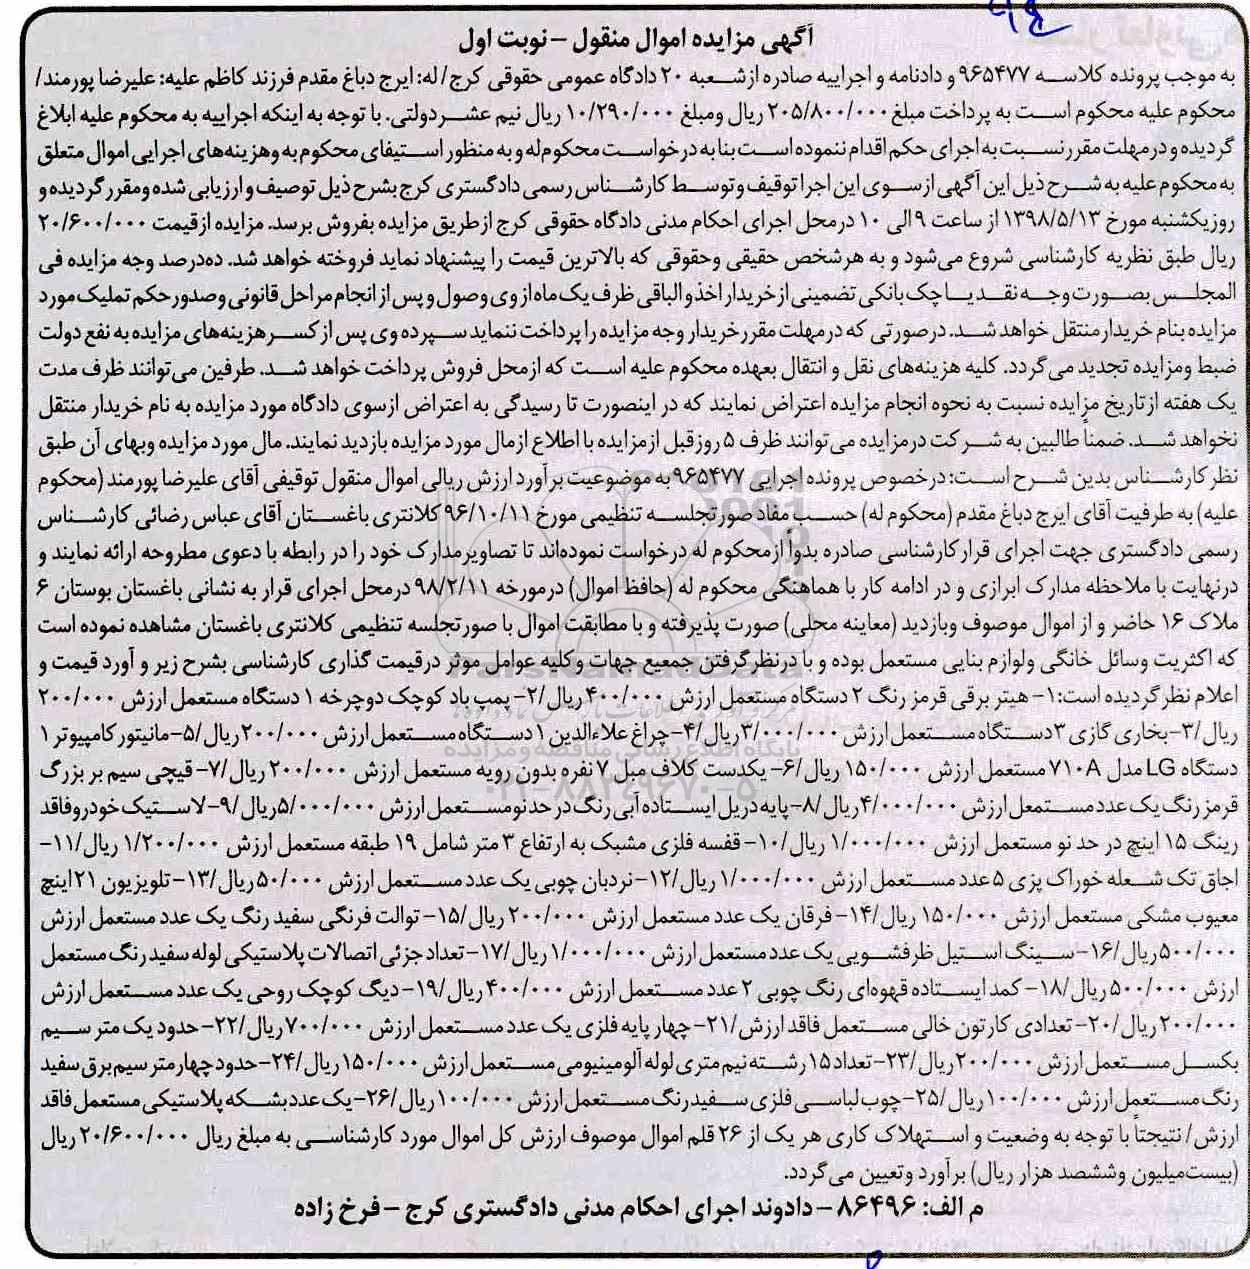 آگهی مزایده اموال منقول – نوبت اول
به موجب پرونده کلاسه ۹۶۵۴۷۷ و دادنامه و اجراییه صادره ازشعبه ۲۰ دادگاه عمومی حقوقی کرج/ له: ایرج دباغ مقدم فرزند کاظم علیه: علیرضا پورمند/
محکوم علیه محکوم است به پرداخت مبلغ ۲۰۵/۸۰۰/۰۰۰ ریال ومبلغ ۱۰/۲۹۰/۰۰۰ ریال نیم عشردولتی. با توجه به اینکه اجراییه به محکوم علیه ابلاغ
گردیده و درمهلت مقررنسبت به اجرای حکم اقدام ننموده است بنا به درخواست محکوم‌له و به منظور استیفای محکوم به وهزینه‌های اجرایی اموال متعلق
به محکوم علیه به شرح ذیل این آگهی ازسوی این اجرا توقیف و توسط کارشناس رسمی دادگستری کرج بشرح ذیل توصیف و ارزیابی شده ومقرر گردیده و
روزیکشنبه مورخ ۱۳۹۸/۵/۱۳ از ساعت ۹ الی ۱۰ درمحل اجرای احکام مدنی دادگاه حقوقی کرج ازطریق مزایده بفروش برسد. مزایده ازقیمت ۲۰/۶۰۰/۰۰۰
ریال طبق نظریه کارشناسی شروع می‌شود و به هرشخص حقیقی وحقوقی که بالاترین قیمت را پیشنهاد نماید فروخته خواهد شد. ده‌درصد وجه مزایده فی
المجلس بصورت وجه نقد یا چک بانکی تضمینی ازخریدار اخذ و الباقی ظرف یک ماه از وی وصول و پس از انجام مراحل قانونی وصدور حکم تملیک مورد
مزایده بنام خریدار منتقل خواهد شد. درصورتی که درمهلت مقرر خریدار وجه مزایده را پرداخت ننماید سپرده وی پس از کسر هزینه‌های مزایده به نفع دولت
ضبط ومزایده تجدید می‌گردد. کلیه هزینه‌های نقل و انتقال بعهده محکوم علیه است که ازمحل فروش پرداخت خواهد شد. طرفین می‌توانند ظرف مدت
یک هفته ازتاریخ مزایده نسبت به نحوه انجام مزایده اعتراض نمایند که در اینصورت تا رسیدگی به اعتراض ازسوی دادگاه مورد مزایده به نام خریدار منتقل
نخواهد شد. ضمناً طالبین به شرکت درمزایده می‌توانند ظرف ۵ روزقبل ازمزایده با اطلاع ازمال مورد مزایده بازدید نمایند. مال مورد مزایده وبهای آن طبق
نظرکارشناس بدین شرح است: درخصوص پرونده اجرایی ۹۶۵۴۷۷ به موضوعیت برآورد ارزش ریالی اموال منقول توقیفی آقای علیرضا پورمند (محکوم
علیه) به طرفیت آقای ایرج دباغ مقدم (محکوم له) حسب مفاد صورتجلسه تنظیمی مورخ ۹۶/۱۰/۱۱ کلانتری باغستان آقای عباس رضائی کارشناس
رسمی دادگستری جهت اجرای قرارکارشناسی صادره بدواً ازمحکوم له درخواست نموده‌اند تا تصاویرمدارک خود را در رابطه با دعوی مطروحه ارائه نمایند و
درنهایت با ملاحظه مدارک ابرازی و در ادامه کار با هماهنگی محکوم له (حافظ اموال) درمورخه ۹۸/۲/۱۱ درمحل اجرای قرار به نشانی باغستان بوستان ۶
ملاک ۱۶ حاضر و از اموال موصوف وبازدید (معاینه محلی) صورت پذیرفته و با مطابقت اموال با صورتجلسه تنظیمی کلانتری باغستان مشاهده نموده است
که اکثریت وسائل خانگی ولوازم بنایی مستعمل بوده و با درنظرگرفتن جمعیع جهات وکلیه عوامل موثر درقیمت گذاری کارشناسی بشرح زیر و آورد قیمت و
اعلام نظرگردیده است: ۱– هیتر برقی قرمز رنگ ۲ دستگاه مستعمل ارزش ۴۰۰/۰۰۰ ریال/۲– پمپ باد کوچک دوچرخه ۱ دستگاه مستعمل ارزش ۲۰۰/۰۰۰
ریال/۳–بخاری گازی ۳ دستگاه مستعمل ارزش ۳/۰۰۰/۰۰۰ ریال/۴–چراغ علاءالدین ۱ دستگاه مستعمل ارزش ۲۰۰/۰۰۰ ریال/۵–مانیتور کامپیوتر ۱
دستگاه LG مدل ۷۱۰A مستعمل ارزش ۱۵۰/۰۰۰ ریال/۶– یکدست کلاف مبل ۷ نفره بدون رویه مستعمل ارزش ۲۰۰/۰۰۰ ریال/۷– قیچی سیم بر بزرگ
قرمز رنگ یک عدد مستمعل ارزش ۴/۰۰۰/۰۰۰ ریال/۸–پایه دریل ایستاده آبی رنگ در حد نومستعمل ارزش ۵/۰۰۰/۰۰۰ ریال/۹–لاستیک خودروفاقد
رینگ ۱۵ اینچ در حد نو مستعمل ارزش ۱/۰۰۰/۰۰۰ ریال/۱۰– قفسه فلزی مشبک به ارتفاع ۳ متر شامل ۱۹ طبقه مستعمل ارزش ۱/۲۰۰/۰۰۰ ریال/۱۱–
اجاق تک شعله خوراک پزی ۵ عدد مستعمل ارزش ۱/۰۰۰/۰۰۰ ریال/۱۲–نردبان چوبی یک عدد مستعمل ارزش ۵۰/۰۰۰ ریال/۱۳–تلویزیون ۲۱ اینچ
معیوب مشکی مستعمل ارزش ۱۵۰/۰۰۰ ریال/۱۴– فرقان یک عدد مستعمل ارزش ۲۰۰/۰۰۰ ریال/۱۵– توالت فرنگی سفید رنگ یک عدد مستعمل ارزش
۵۰۰/۰۰۰ ریال/۱۶–سینگ استیل ظرفشویی یک عدد مستعمل ارزش ۱/۰۰۰/۰۰۰ ریال/۱۷–تعداد جزئی اتصالات پلاستیکی لوله سفید رنگ مستعمل
ارزش ۵۰۰/۰۰۰ ریال/۱۸– کمد ایستاده قهوه‌ای رنگ چوبی ۲ عدد مستعمل ارزش ۴۰۰/۰۰۰ ریال/۱۹–دیگ کوچک روحی یک عدد مستعمل ارزش
۲۰۰/۰۰۰ ریال/۲۰–تعدادی کارتون خالی مستعمل فاقد ارزش/۲۱–چهار پایه فلزی یک عدد مستعمل ارزش ۷۰۰/۰۰۰ ریال/۲۲–حدود یک متر سیم
بکسل مستعمل ارزش ۲۰۰/۰۰۰ ریال/۲۳–تعداد ۱۵ رشته نیم متری لوله آلومینیومی مستعمل ارزش ۱۵۰/۰۰۰ ریال/۲۴–حدود چهار متر سیم برق سفید
رنگ مستعمل ارزش ۱۰۰/۰۰۰ ریال/۲۵–چوب لباسی فلزی سفید رنگ مستعمل ارزش ۱۰۰/۰۰۰ ریال/۲۶–یک عدد بشکه پلاستیکی مستعمل فاقد
ارزش/ نتیجتاً با توجه به وضعیت و استهلاک کاری هر یک از ۲۶ قلم اموال موصوف ارزش کل اموال مورد کارشناسی به مبلغ ریال ۲۰/۶۰۰/۰۰۰ ریال
(بیست‌میلیون وششصد هزار ریال) برآورد وتعیین می‌گردد.
م الف: ۸۶۴۹۶ – دادوند اجرای احکام مدنی دادگستری کرج – فرخ زاده
ParsNamadData
پایگاه اطلاع رسانی مناقصه و مزایده
۰۲۱-۸۸۳۴۹۶۷۰-۵